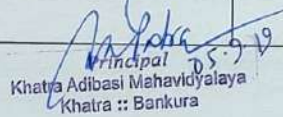 Principal
05.9.19
Khatra Adibasi Mahavidyalaya
Khatra :: Bankura